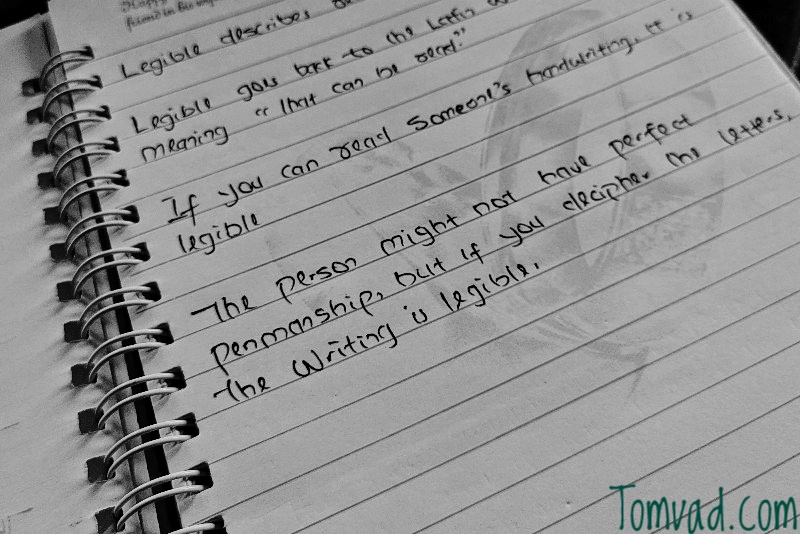 Legible describes
Legible goes back to the Latin
meaning "that can be read."
If you can read someone's handwriting, it is
legible
The person might not have perfect
penmanship, but if you decipher the letters,
The writing is legible.
Tomvad.com